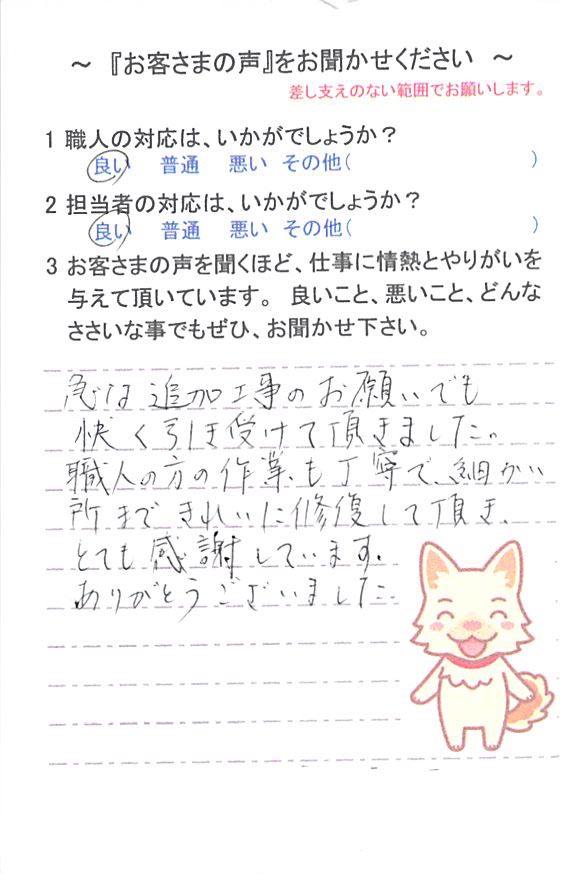 ～ 『お客さまの声』をお聞かせください ～
差し支えのない範囲でお願いします。
1 職人の対応は、いかがでしょうか？
良い 普通 悪い その他( )
2 担当者の対応は、いかがでしょうか？
良い 普通 悪い その他( )
3 お客さまの声を聞くほど、仕事に情熱とやりがいを
与えて頂いています。 良いこと、悪いこと、どんな
ささいな事でもぜひ、お聞かせ下さい。
急な追加工事のお願いでも
快く引き受けて頂きました。
職人の方の作業も丁寧で、細かい
所まできれいに修復して頂き、
とても感謝しています。
ありがとうございました。